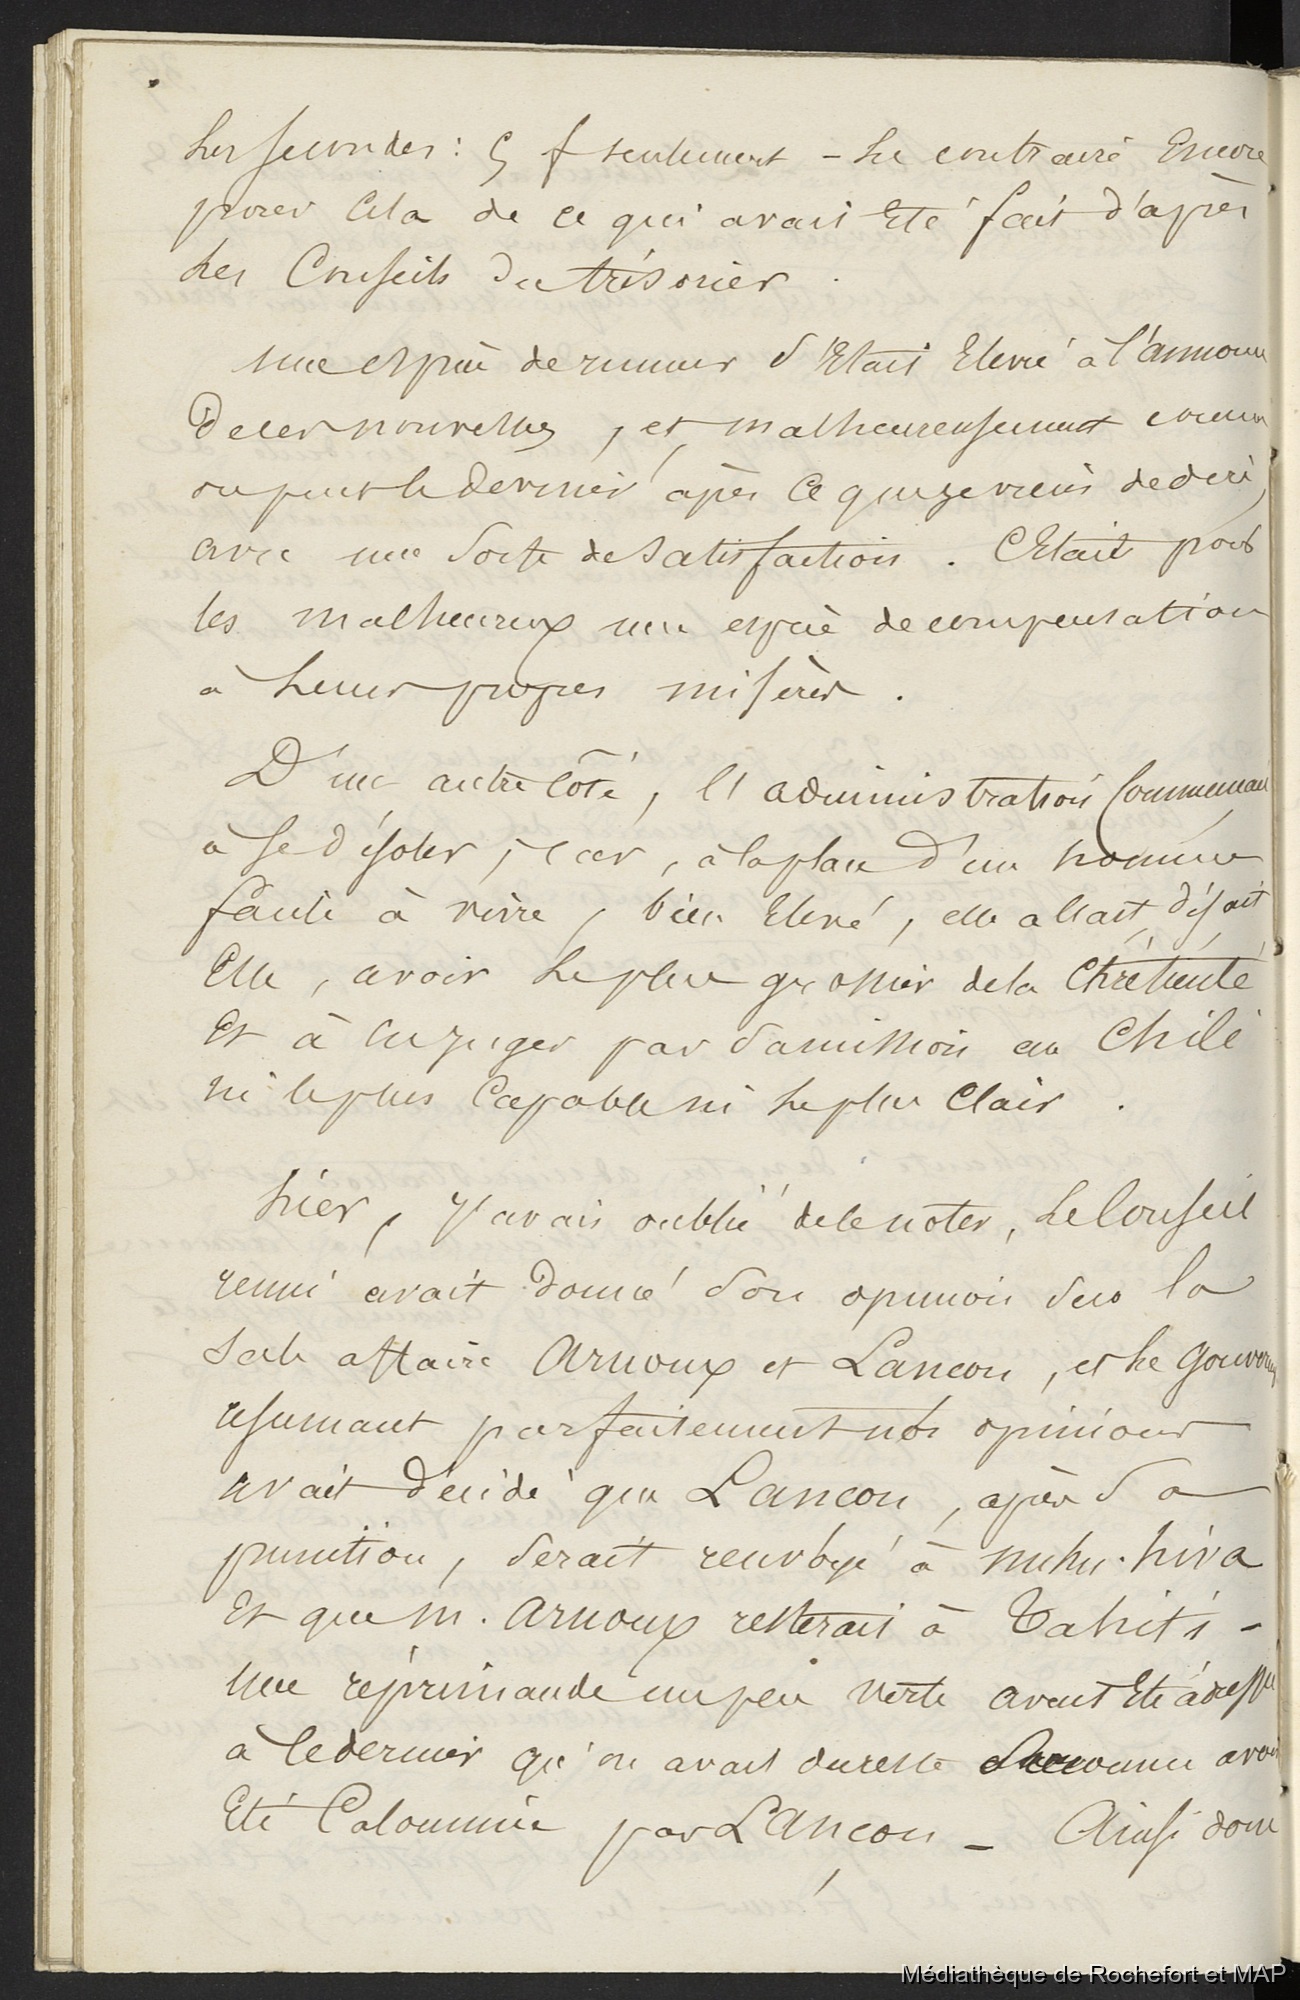 les secondes : 5 f seulement - le contraire encore
pour cela de ce qui avait été fait d'après
les Conseils du trésorier.
une espèce de rumeur s'était élevée à l'annonce
de ces nouvelles, et malheureusement comme
on peut le deviner après ce que je viens de dire,
avec une sorte de satisfaction. C'était pour
les malheureux une espèce de compensation
à leurs propres misères.
D'un autre côté, l'administration Commençait
à se désoler, car, à la place d'un homme
facile à vivre, bien élevé, elle allait, disait
Elle, avoir le plus grossier de la Chrétienté
Et à en juger par sa mission au Chili
ni le plus Capable ni le plus Clair.
hier, j'avais oublié de le noter, le Conseil
réuni avait donné son opinion sur la
sale affaire Arnoux et Lançon, et le Gouverneur
résumant parfaitement nos opinions
avait décidé que Lançon, après sa
punition, serait renvoyé à nuku-hiva
Et que M. Arnoux resterait à Tahiti -
une réprimande un peu verte avait été adressée
à ce dernier qu'on avait du reste reconnu avoir
Eté Calomnié par Lançon - Ainsi donc
Médiathèque de Rochefort et MAP